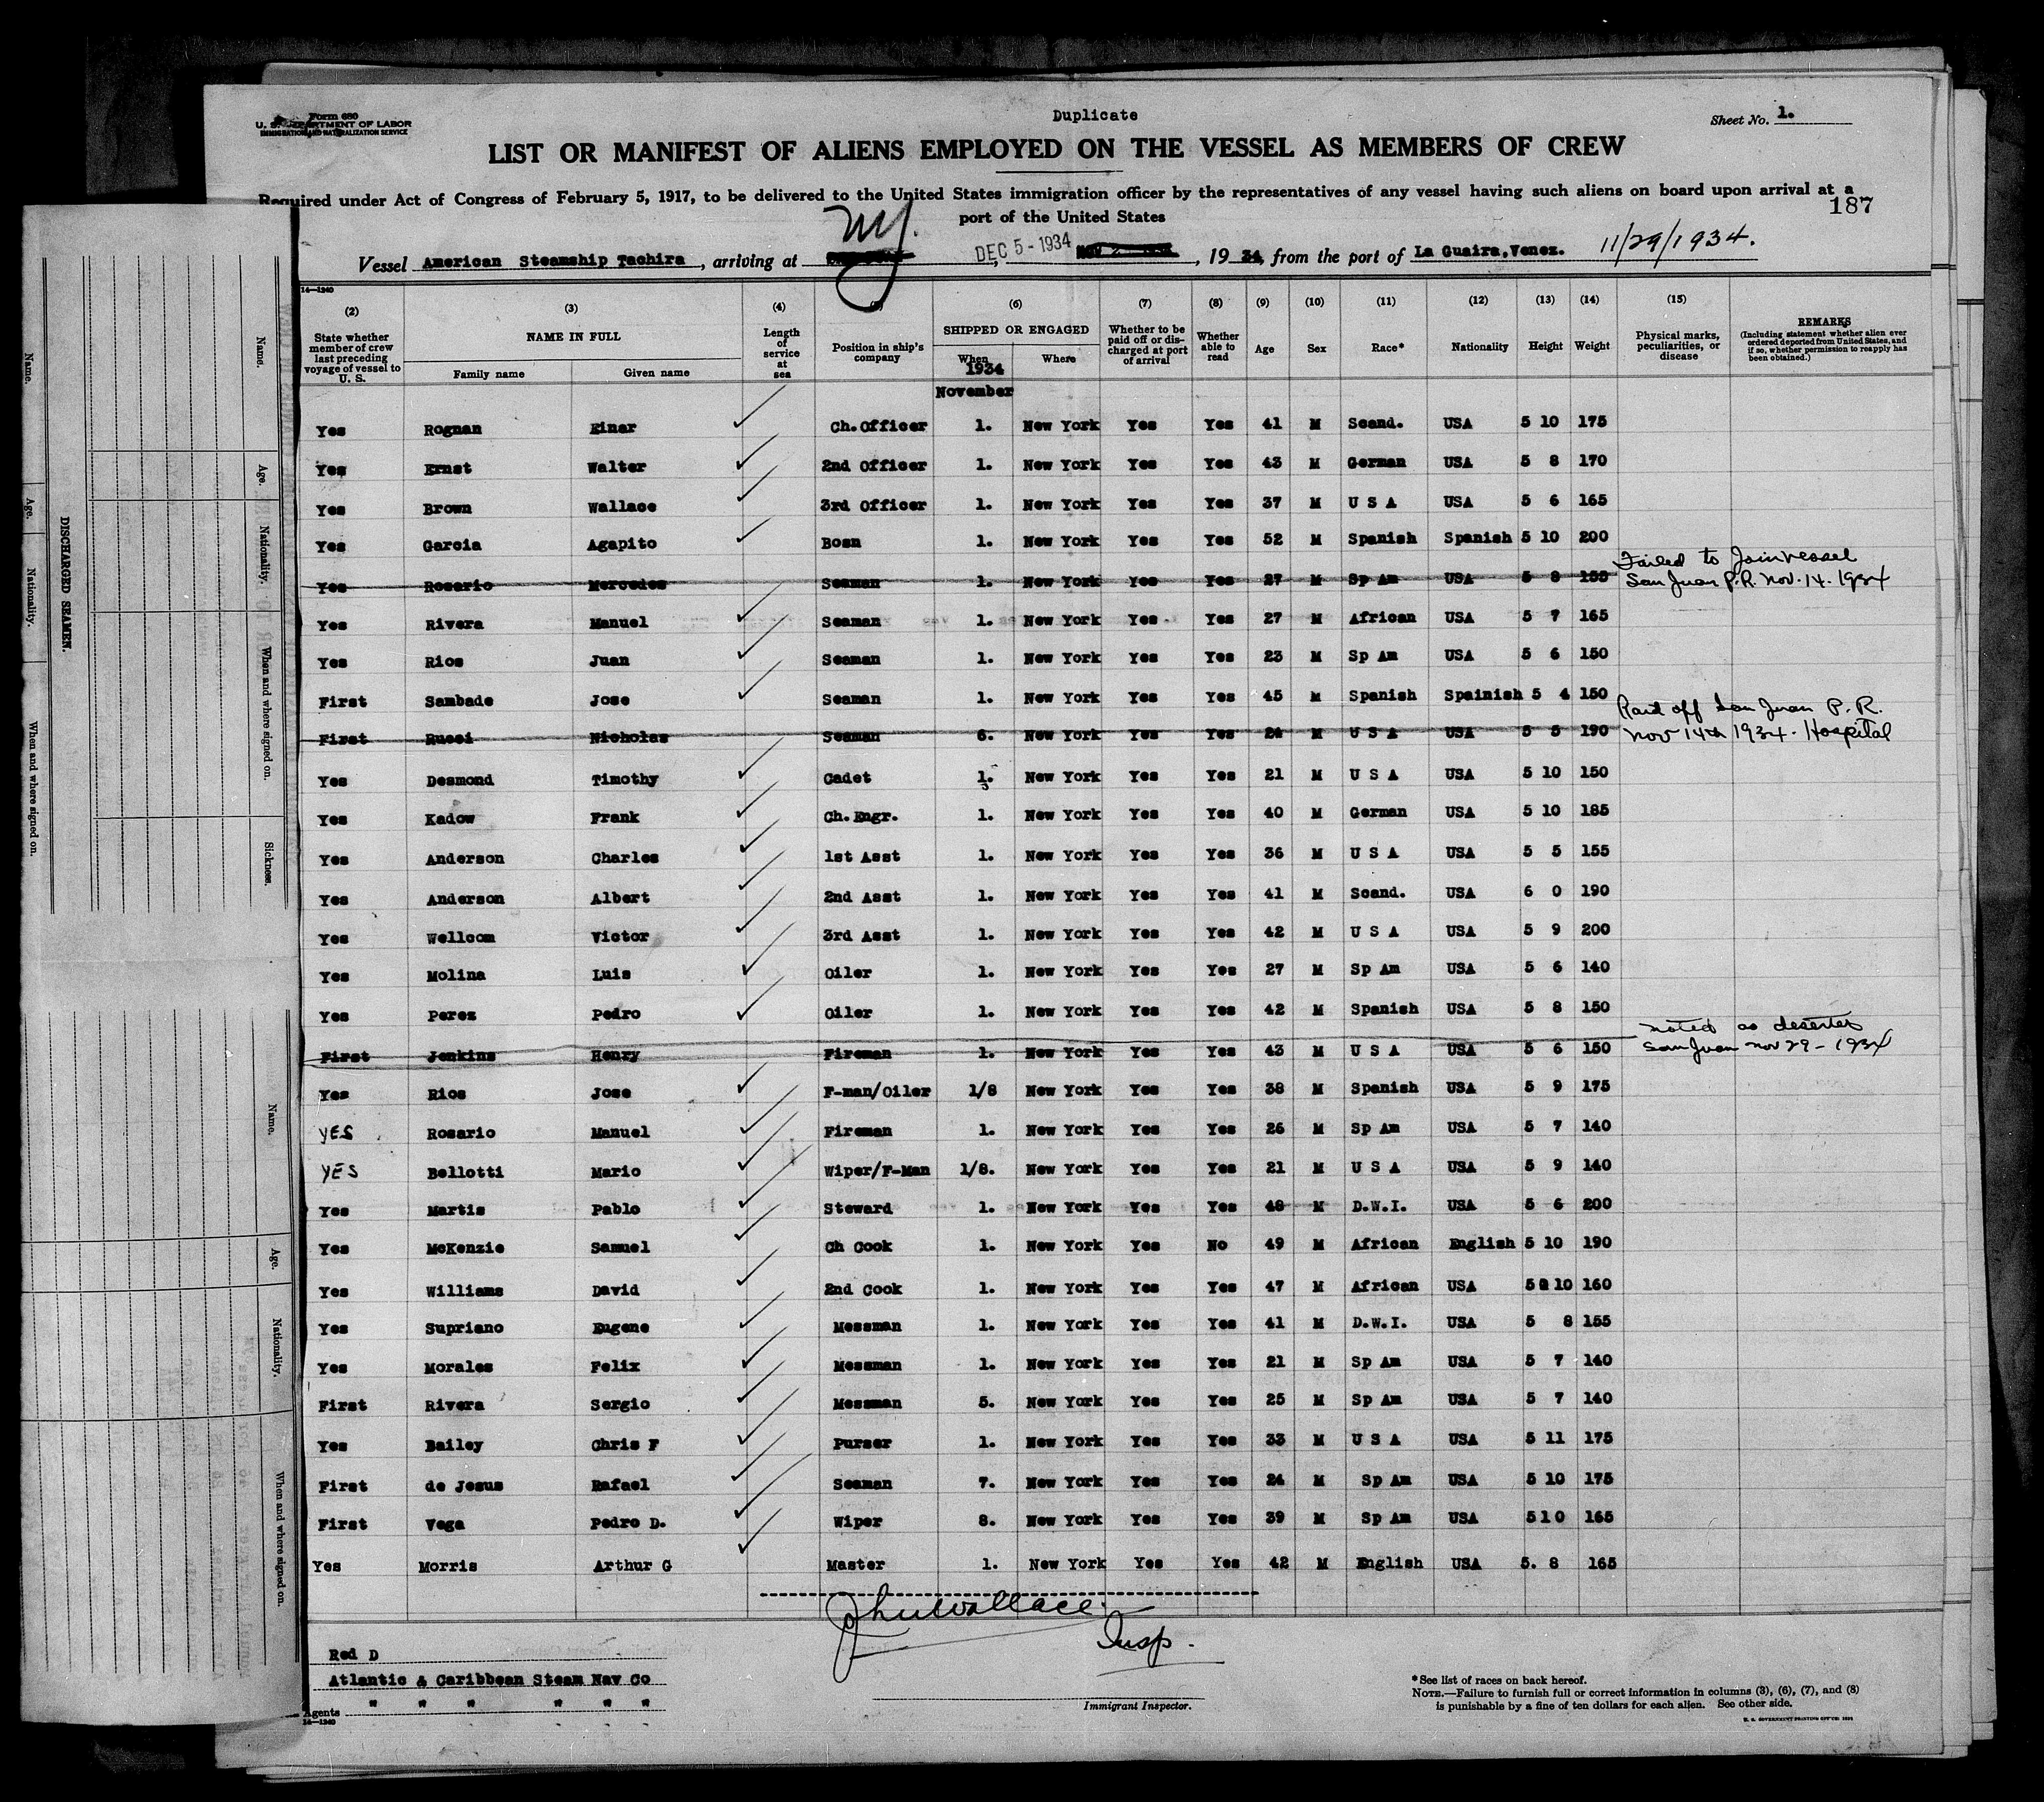 Form 680
U. S. DEPARTMENT OF LABOR
IMMIGRATION AND NATURALIZATION SERVICE
Duplicate
Sheet No. 1.
LIST OR MANIFEST OF ALIENS EMPLOYED ON THE VESSEL AS MEMBERS OF CREW
Required under Act of Congress of February 5, 1917, to be delivered to the United States immigration officer by the representatives of any vessel having such aliens on board upon arrival at a
port of the United States
187
Vessel American Steamship Tachira, arriving at NY. DEC 5 - 1934, 1934, from the port of La Guaira, Venez. 11/29/1934.
14—1240
(2) (3) (4) (5) (6) (7) (8) (9) (10) (11) (12) (13) (14) (15)
State whether member of crew last preceding voyage of vessel to U. S.
NAME IN FULL
Family name Given name
Length of service at sea
Position in ship's company
SHIPPED OR ENGAGED
When Where
1934
November
Whether to be paid off or discharged at port of arrival
Whether able to read
Age Sex Race* Nationality Height Weight
Physical marks, peculiarities, or disease
REMARKS
(Including statement whether alien ever ordered deported from United States, and if so, whether permission to reapply has been obtained.)
Yes Rognan Einar Ch.Officer 1. New York Yes Yes 41 M Scand. USA 5 10 175
Yes Ernst Walter 2nd Officer 1. New York Yes Yes 43 M German USA 5 8 170
Yes Brown Wallace 3rd Officer 1. New York Yes Yes 37 M U S A USA 5 6 165
Yes Garcia Agapito Bosn 1. New York Yes Yes 52 M Spanish Spanish 5 10 200
Yes Rosario Mercedes Seaman 1. New York Yes Yes 27 M Sp Am USA 5 8 155 Failed to Join vessel
San Juan P.R. Nov. 14. 1934
Yes Rivera Manuel Seaman 1. New York Yes Yes 27 M African USA 5 7 165
Yes Rios Juan Seaman 1. New York Yes Yes 23 M Sp Am USA 5 6 150
First Sambade Jose Seaman 1. New York Yes Yes 45 M Spanish Spainish 5 4 150
First Rucci Nicholas Seaman 6. New York Yes Yes 24 M U S A USA 5 5 190 Paid off San Juan P. R.
Nov 14th 1934. Hospital
Yes Desmond Timothy Cadet 1. New York Yes Yes 21 M U S A USA 5 10 150
Yes Kadow Frank Ch.Engr. 1. New York Yes Yes 40 M German USA 5 10 185
Yes Anderson Charles 1st Asst 1. New York Yes Yes 36 M U S A USA 5 5 155
Yes Anderson Albert 2nd Asst 1. New York Yes Yes 41 M Scand. USA 6 0 190
Yes Wellcom Victor 3rd Asst 1. New York Yes Yes 42 M U S A USA 5 9 200
Yes Molina Luis Oiler 1. New York Yes Yes 27 M Sp Am USA 5 6 140
Yes Perez Pedro Oiler 1. New York Yes Yes 42 M Spanish USA 5 8 150
First Jenkins Henry Fireman 1. New York Yes Yes 43 M U S A USA 5 6 150 noted as deserter
San Juan nov 29 - 1934
Yes Rios Jose F-man/Oiler 1/8 New York Yes Yes 38 M Spanish USA 5 9 175
YES Rosario Manuel Fireman 1. New York Yes Yes 26 M Sp Am USA 5 7 140
YES Bellotti Mario Wiper/F-Man 1/8. New York Yes Yes 21 M U S A USA 5 9 140
Yes Martis Pablo Steward 1. New York Yes Yes 48 M D.W.I. USA 5 6 200
Yes McKenzie Samuel Ch Cook 1. New York Yes No 49 M African English 5 10 190
Yes Williams David 2nd Cook 1. New York Yes Yes 47 M African USA 5 10 160
Yes Supriano Eugene Messman 1. New York Yes Yes 41 M D.W.I. USA 5 8 155
Yes Morales Felix Messman 1. New York Yes Yes 21 M Sp Am USA 5 7 140
First Rivera Sergio Messman 5. New York Yes Yes 25 M Sp Am USA 5 7 140
Yes Bailey Chris F Purser 1. New York Yes Yes 33 M U S A USA 5 11 175
First de Jesus Rafael Seaman 7. New York Yes Yes 24 M Sp Am USA 5 10 175
First Vega Pedro D. Wiper 8. New York Yes Yes 39 M Sp Am USA 510 165
Yes Morris Arthur G Master 1. New York Yes Yes 42 M English USA 5. 8 165
John Wallace
Insp.
Immigrant Inspector.
Red D
Atlantic & Caribbean Steam Nav Co
" " " " " "
Agents
14—1240
*See list of races on back hereof.
NOTE.—Failure to furnish full or correct information in columns (3), (6), (7), and (8)
is punishable by a fine of ten dollars for each alien. See other side.
DISCHARGED SEAMEN.
Name. Age. Nationality. When and where signed on.
Name. Age. Nationality. When and where signed on. Sickness.
Name. Age. Nationality. When and where signed on.